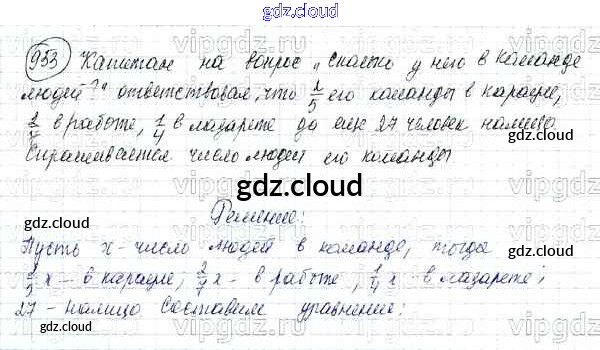 gdz.cloud
953 Капитан на вопрос „Сколько у него в команде
людей?" ответствовал, что 2/5 его команды в карауле,
2/7 в работе, 1/4 в лазарете да еще 27 человек налицо.
Спрашивается число людей его команды
gdz.cloud
gdz.cloud
gdz.cloud
Решение:
Пусть x - число людей в команде, тогда
2/5 x - в карауле, 2/7 x - в работе, 1/4 x - в лазарете;
27 - налицо. Составим уравнение:
gdz.cloud
gdz.cloud